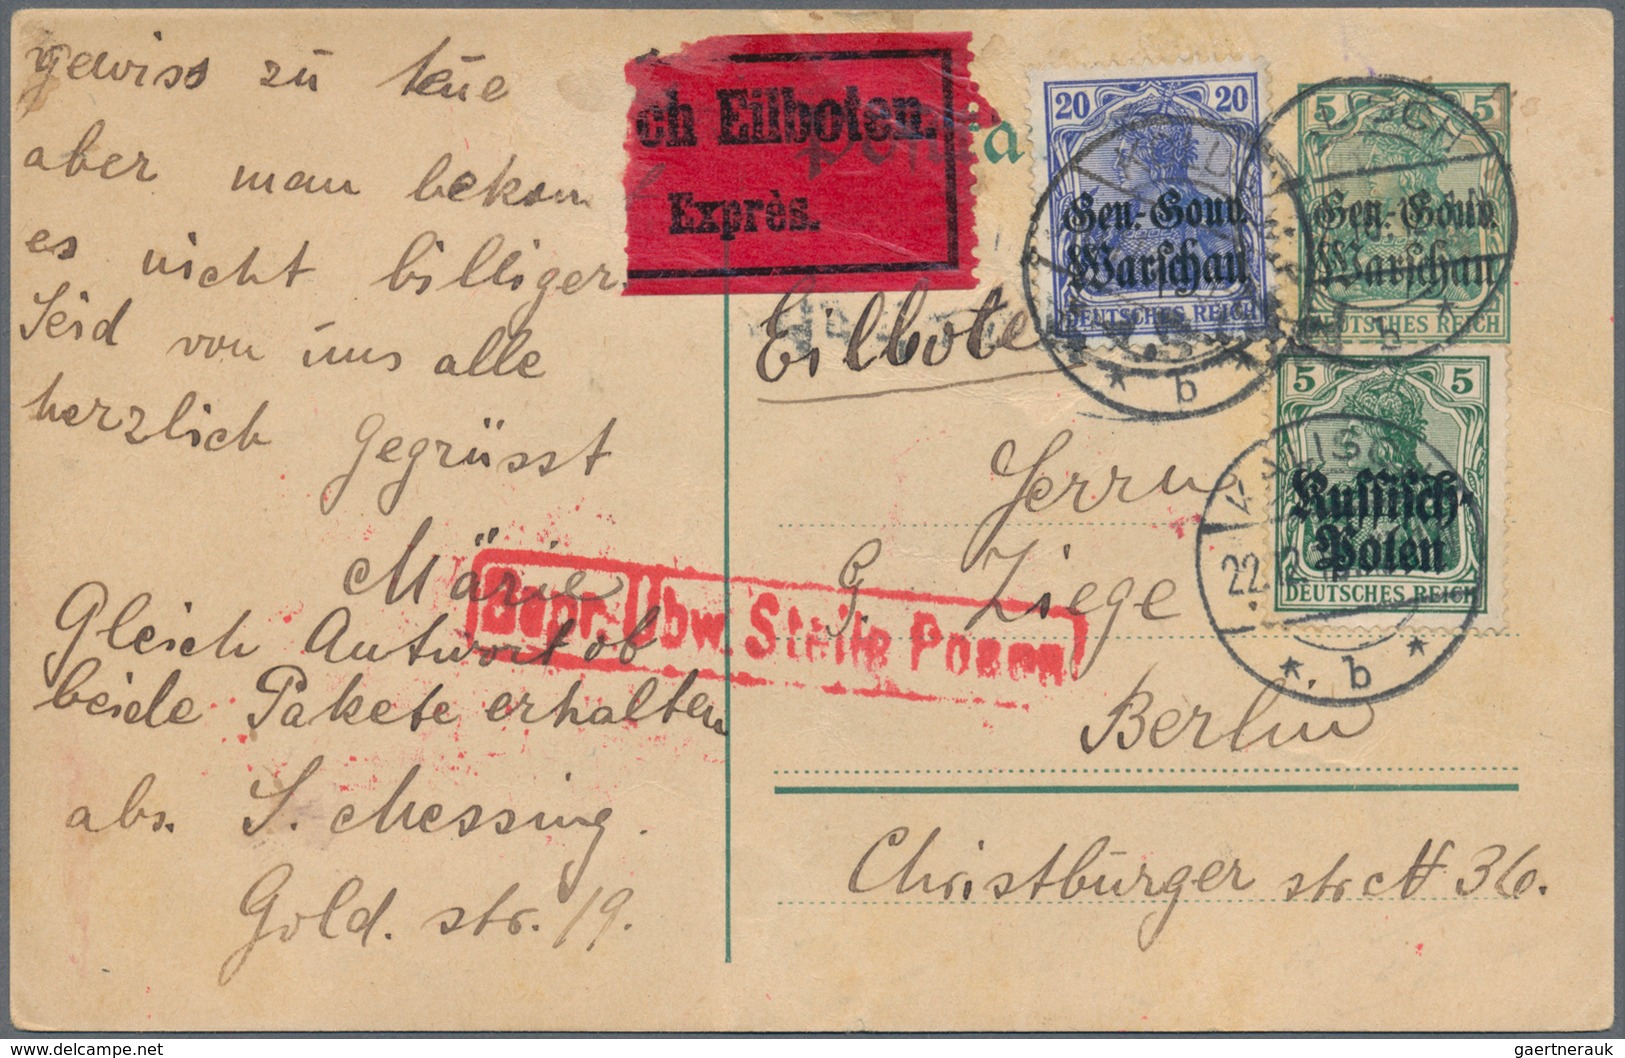 gewiss zu teüe
aber man bekom
es nicht billiger.
Seid von uns alle
herzlich gegrüsst
Märie
Gleich Antwort ob
beide Pakete erhalten
abs. S. Messing.
Gold. str. 19.
ch Eilboten.
Exprès.
Postka
Eilbote
20 20
Gen.-Gouv.
Warschau
DEUTSCHES REICH
b
5 5
Gen.-Gouv.
Warschau
DEUTSCHES REICH
b
5 5
Russisch-
Polen
DEUTSCHES REICH
KALISCH
22.12.
b
Bepr. Übw. Stelle Posen
Herrn
G. Ziege
Berlin
Christbürger str. N 36.
delcampe.net
gaertnerauk